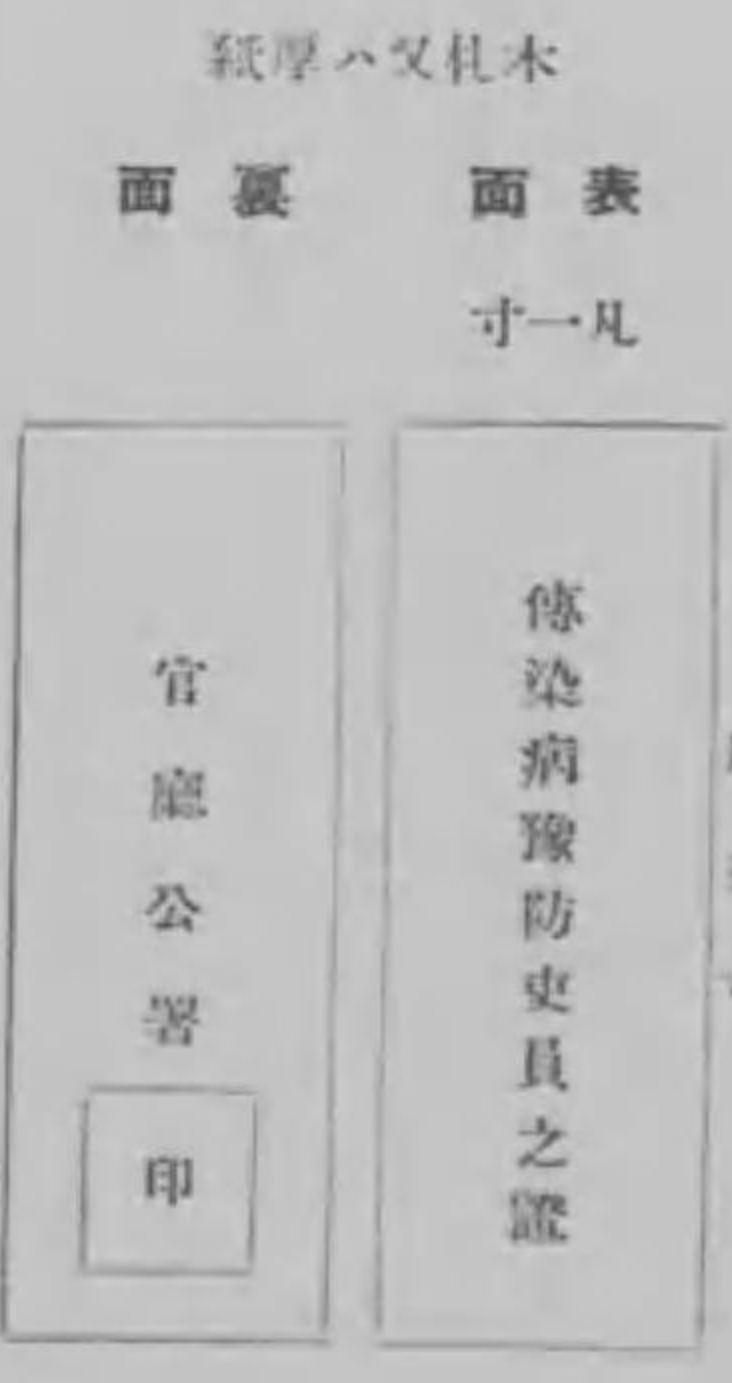 木札又ハ厚紙
表面
凡一寸
傳染病豫防吏員之證
裏面
官廳公署
印